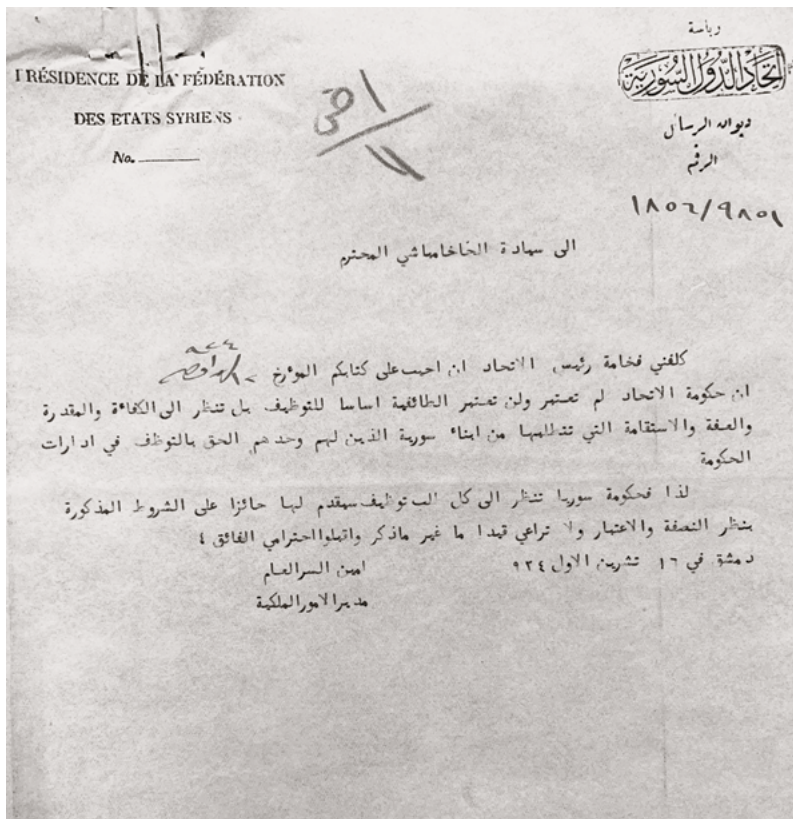 PRÉSIDENCE DE LA FÉDÉRATION
DES ETATS SYRIENS
No.
رياسة
اتحاد الدول السورية
ديوان الرسائل
الرقم
١٨٥٦/٩٨٥١
الى سعادة الخاخامباشي المحترم
كلفني فخامة رئيس الاتحاد ان اجيب على كتابكم المؤرخ
ان حكومة الاتحاد لم تعتبر ولن تعتبر الطائفية اساسا للتوظيف بل تنظر الى الكفاءة والمقدرة
والعفة والاستقامة التي تتطلبها من ابناء سورية الذين لهم وحدهم الحق بالتوظف في ادارات
الحكومة
لذا فحكومة سوريا تنظر الى كل طلب توظيف سيقدم لها حائزا على الشروط المذكورة
بنظر النصفة والاعتبار ولا تراعي قيدا ما غير ماذكر واقبلوا احترامي الفائق
دمشق في ١٦ تشرين الاول ٩٢٤
امين السر العام
مدير الامور الملكية